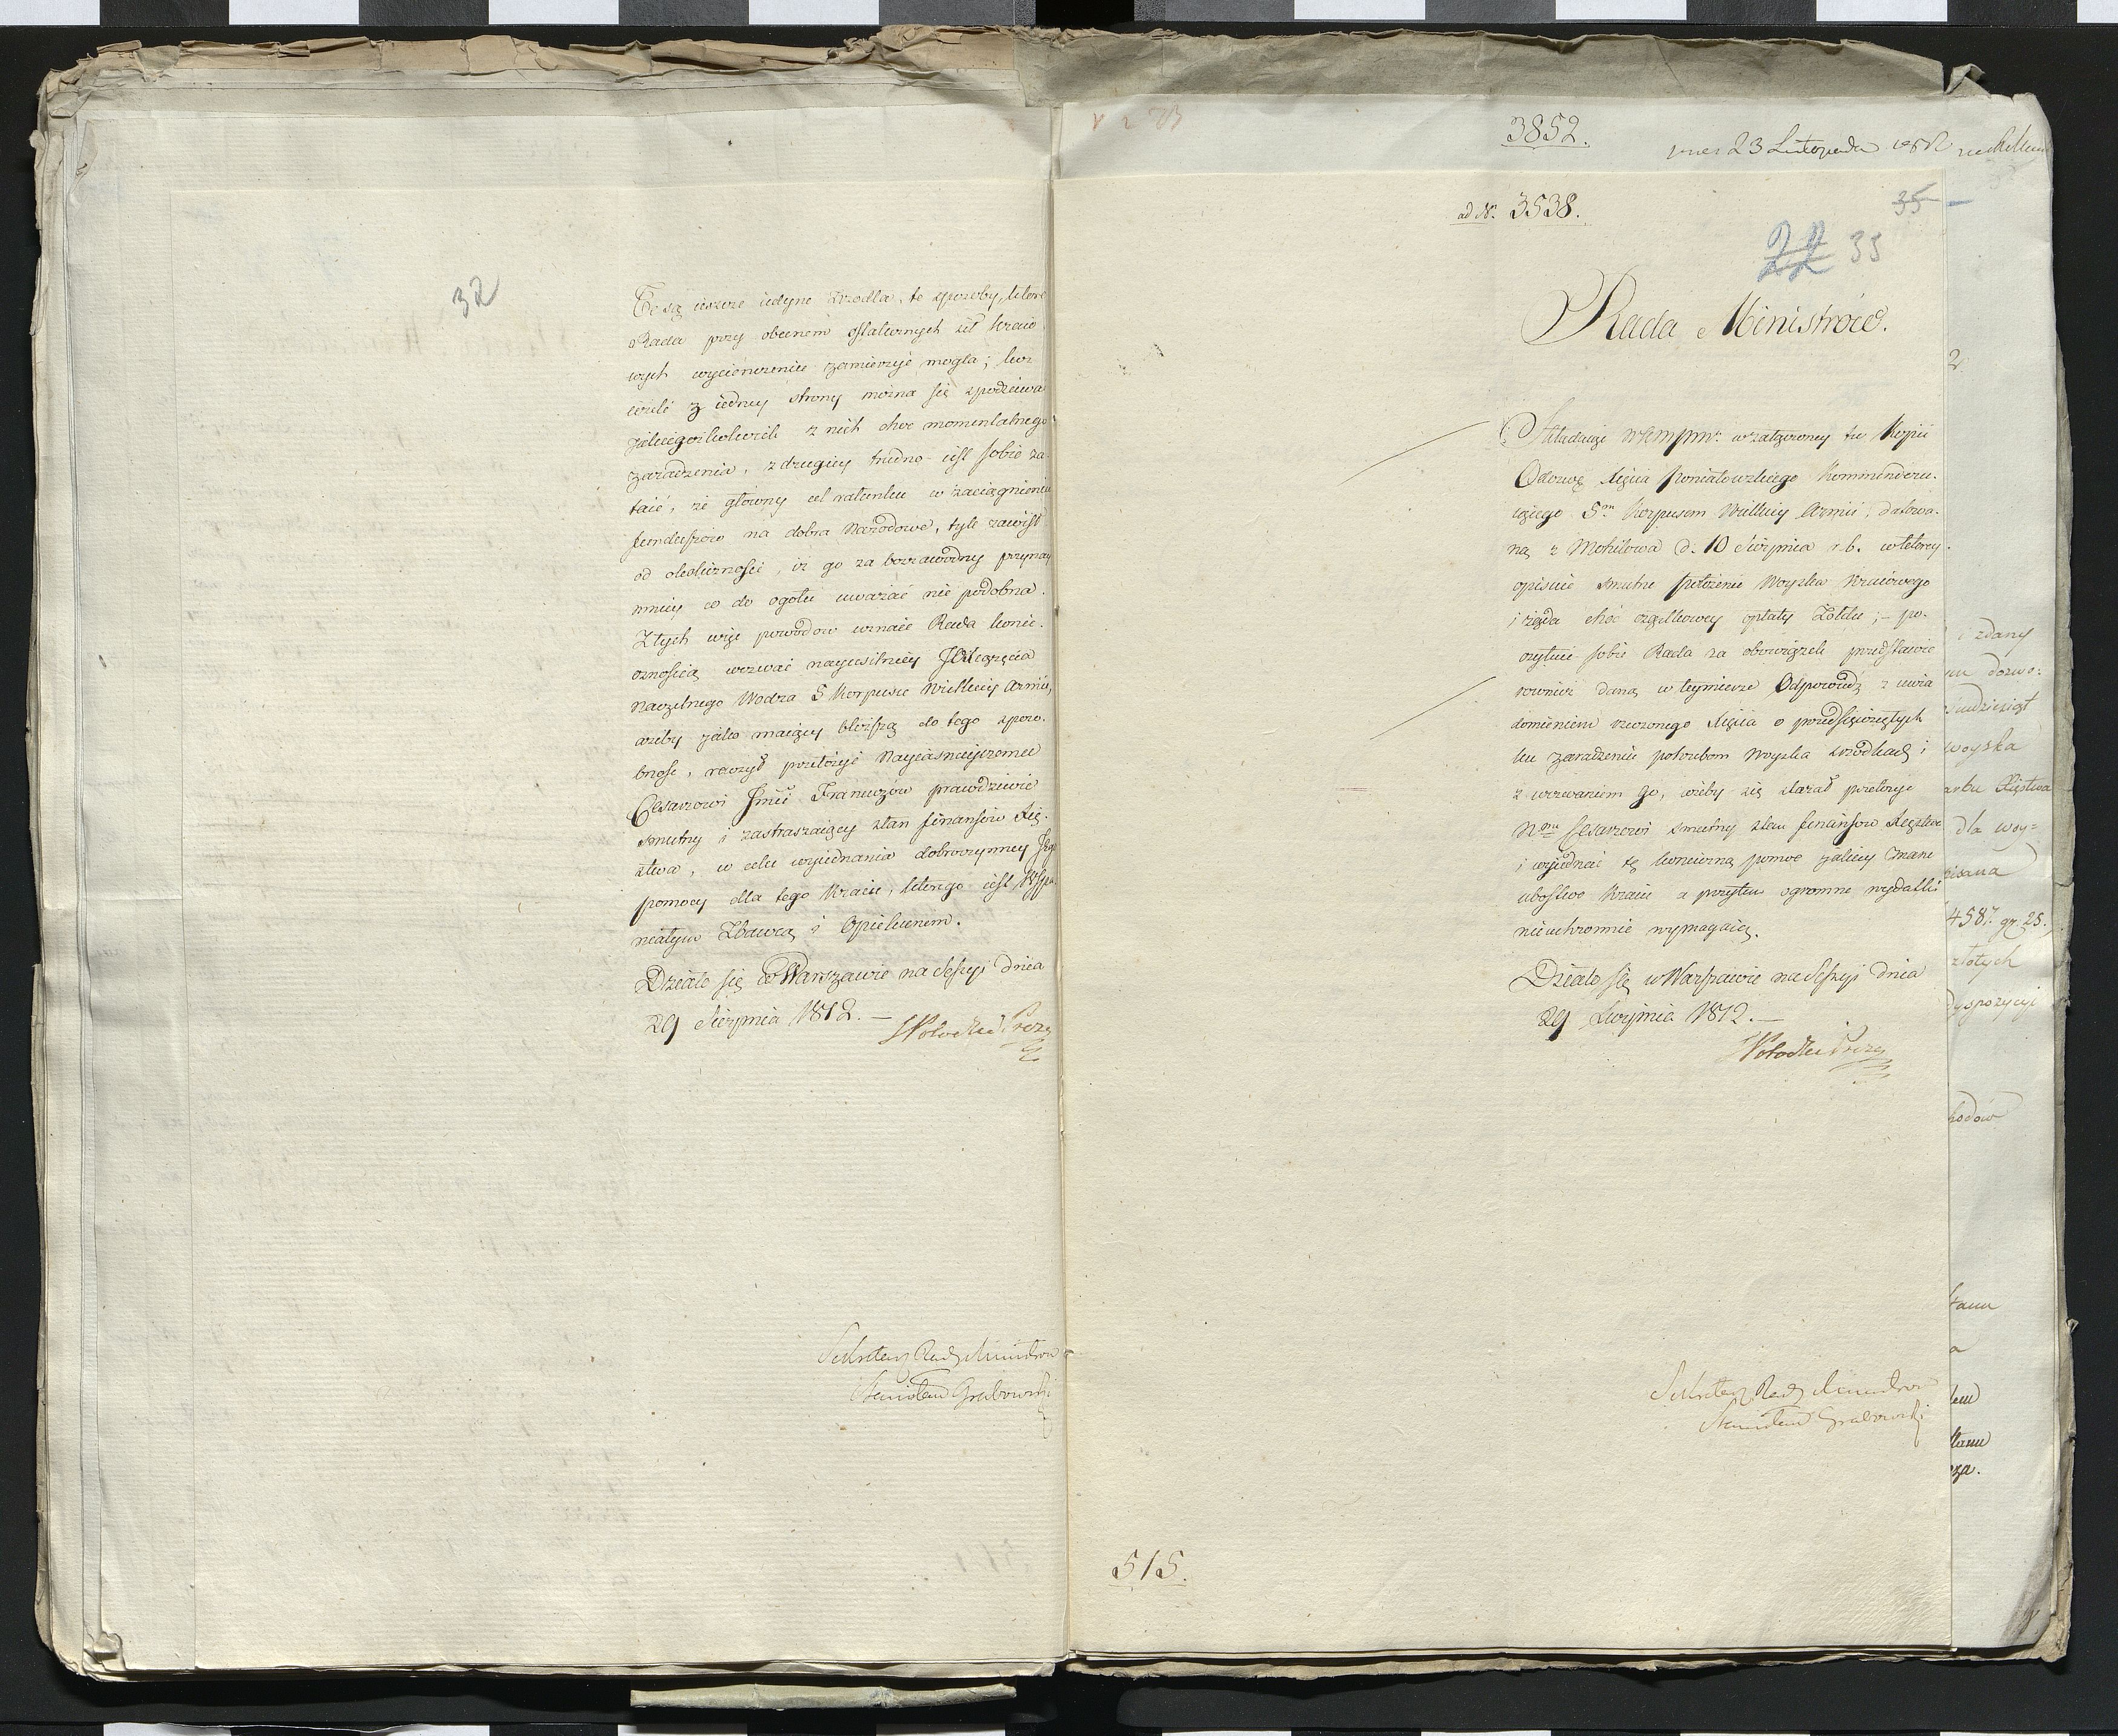 32
Te są ieszcze iedyne źrodła, te sposoby, ktore
Rada przy obecnem ostatecznych sił kraio
wych wycieńczeniu zamierzyć mogła; lecz
ieżeli z iedney strony można się spodziewa
jakiegożkolwiek z nich choć momentalnego
zaradzenia, z drugiey trudno iest sobie za-
taić, że główny cel ratunku w zaciągnieniu
funduszow na dobra Narodowe, tyle zawisł
od okoliczności, iż go za bezzawodny przynay
mniey co do ogołu uważać nie podobna.
Z tych więc powodow uznaie Rada koniec.
cznością wezwać nayusilniey JO Xiążęcia
Naczelnego Wodza 5 Korpusu Wielkiey Armii,
ażeby jako maiący bliższą do tego sposo-
bność, raczył przełożyć Nayiaśnieyszemu
Cesarzowi Jmći Francuzów prawdziwie
smutny i zastraszaiący stan finansów Xię-
stwa, w celu wyiednania dobroczynney Jego
pomocy dla tego Kraiu, ktorego iest Wspa-
niałym Zbawcą i Opiekunem.
Działo się w Warszawie na Sessyi dnia
29 Sierpnia 1812. —
SPotocki Prezes
Sekretarz Rady Ministrow
Stanisław Grabowski
3852.
23 Listopada
ad Nr. 3538.
35
22 35
Rada Ministrów.
Składaiąc WKMPMu. w załączoney tu Kopii
Odezwę Xięcia Poniatowskiego Kommenderu-
iącego 5m Korpusem Wielkiey Armii, datowa-
ną z Mohilowa d. 10 Sierpnia r.b. w ktorey
opisuie smutne położenie Woyska Kraiowego
i żąda choć cząstkowey opłaty Żołdu; — po-
czytuie sobie Rada za obowiązek przedstawić
rownież daną w teymierze Odpowiedź z uwia
domieniem rzeczonego Xięcia o przedsięwziętych
ku zaradzeniu potrzebom Woyska środkach i
z wezwaniem go, ażeby się starał przełożyć
Nmu Cesarzowi smutny stan finansow Xięstwa
i wyiednać tę konieczną pomoc jakiey znane
ubostwo Kraiu a przytem ogromne wydatki
nieuchronnie wymagaią.
Działo się w Warszawie na Sessyi dnia
29 Sierpnia 1812. —
SPotocki Prezes
Sekretarz Rady Ministrow
Stanisław Grabowski
515.
2.
i zdany
dozwo:
woyska
Xięstwa
dla woy=
458. gr. 25.
złotych
dyspozycyi